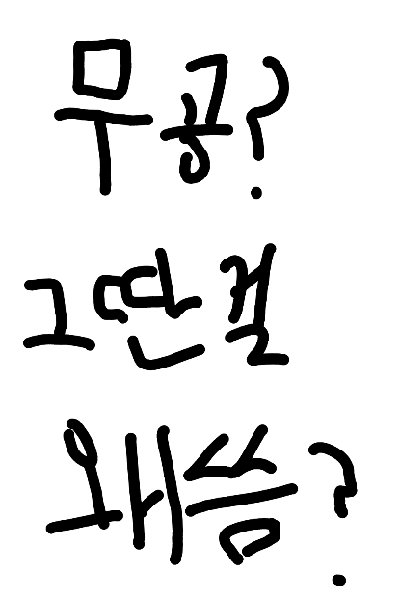 무공?
그딴걸
왜씀?